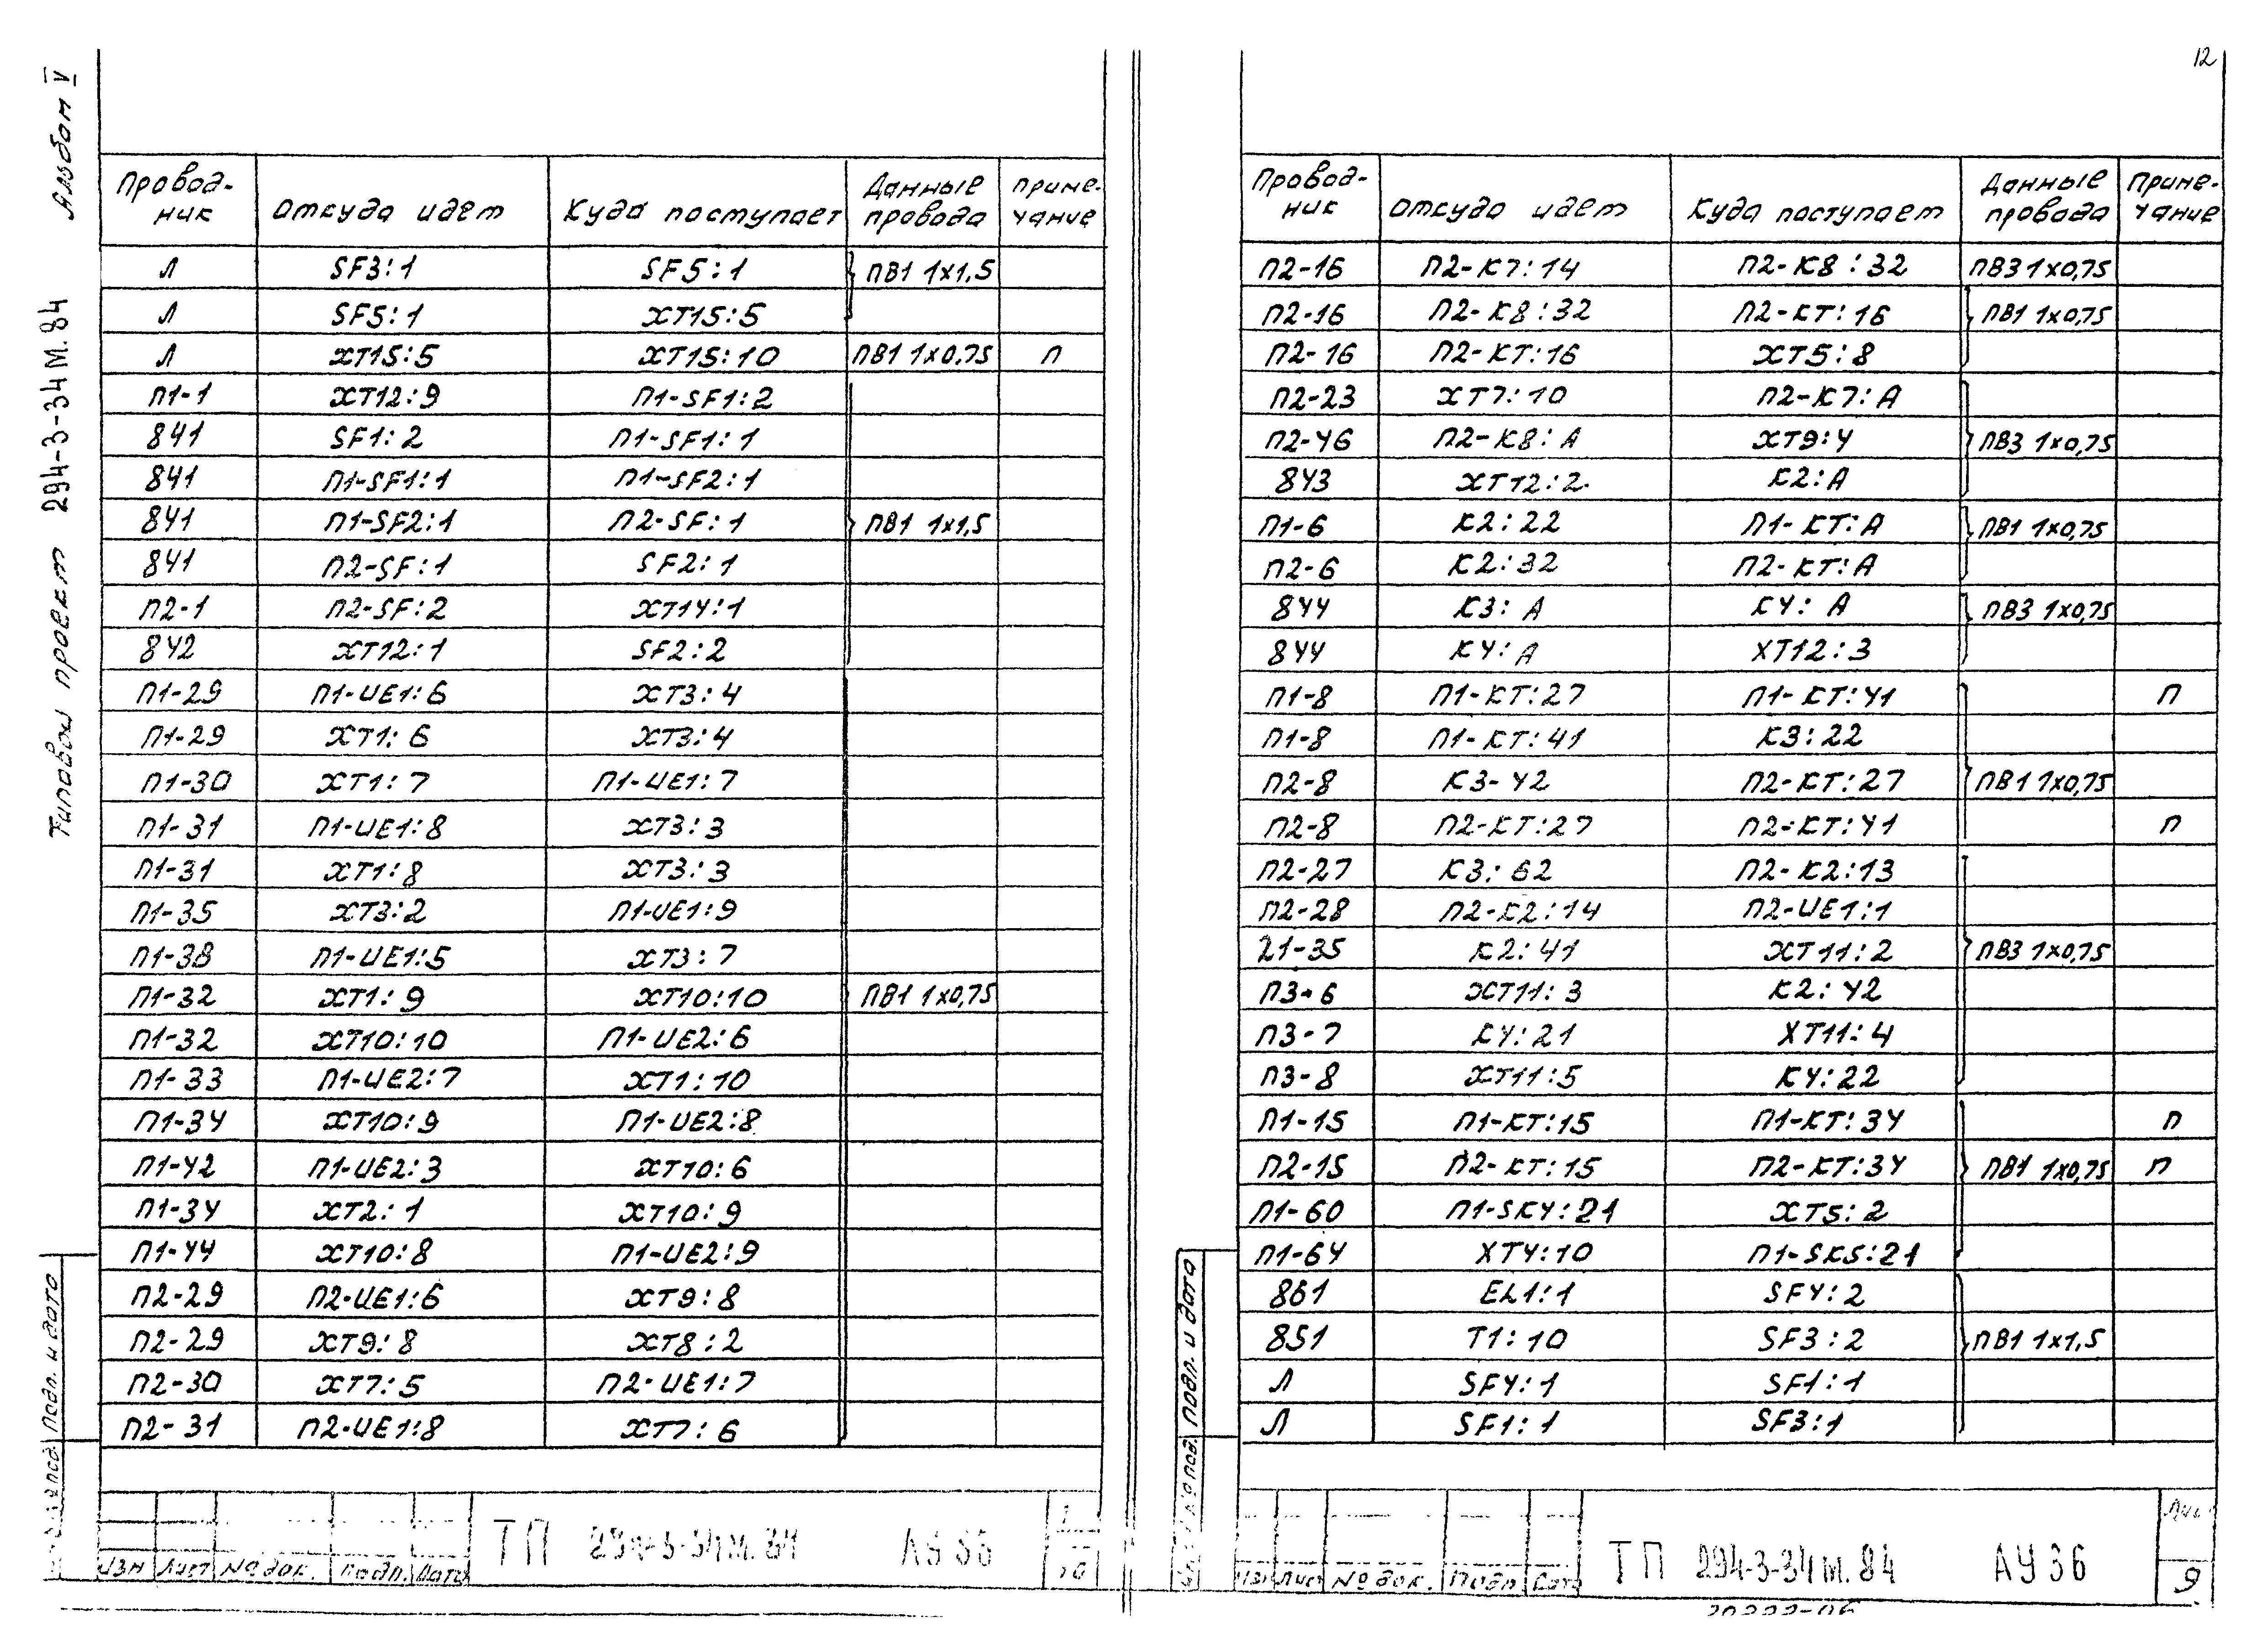 12
Альбом V
Типовой проект 294-3-34м.84
Провод-ник | Откуда идёт | Куда поступает | Данные провода | Приме-чание
Л | SF3:1 | SF5:1 | ПВ1 1x1,5
Л | SF5:1 | XT15:5
Л | XT15:5 | XT15:10 | ПВ1 1x0.75 | П
П1-1 | XT12:9 | П1-SF1:2
841 | SF1:2 | П1-SF1:1
841 | П1-SF1:1 | П1-SF2:1
841 | П1-SF2:1 | П2-SF:1 | ПВ1 1x1,5
841 | П2-SF:1 | SF2:1
П2-1 | П2-SF:2 | XT14:1
842 | XT12:1 | SF2:2
П1-29 | П1-UE1:6 | XT3:4
П1-29 | XT1:6 | XT3:4
П1-30 | XT1:7 | П1-UE1:7
П1-31 | П1-UE1:8 | XT3:3
П1-31 | XT1:8 | XT3:3
П1-35 | XT3:2 | П1-UE1:9
П1-38 | П1-UE1:5 | XT3:7
П1-32 | XT1:9 | XT10:10 | ПВ1 1x0,75
П1-32 | XT10:10 | П1-UE2:6
П1-33 | П1-UE2:7 | XT1:10
П1-34 | XT10:9 | П1-UE2:8
П1-42 | П1-UE2:3 | XT10:6
П1-34 | XT2:1 | XT10:9
П1-44 | XT10:8 | П1-UE2:9
П2-29 | П2-UE1:6 | XT9:8
П2-29 | XT9:8 | XT8:2
П2-30 | XT7:5 | П2-UE1:7
П2-31 | П2-UE1:8 | XT7:6
Подл. и дата
Изм Лист № док. Подп. Дата
ТП 294-3-34м.84 АУ36
Провод-ник | Откуда идет | Куда поступает | Данные провода | Приме-чание
П2-16 | П2-К7:14 | П2-К8:32 | ПВ3 1x0,75
П2-16 | П2-К8:32 | П2-КТ:16 | ПВ1 1x0,75
П2-16 | П2-КТ:16 | XT5:8
П2-23 | XT7:10 | П2-К7:А
П2-46 | П2-К8:А | XT9:4 | ПВ3 1x0,75
843 | XT12:2 | К2:А
П1-6 | К2:22 | П1-КТ:А | ПВ1 1x0,75
П2-6 | К2:32 | П2-КТ:А
844 | К3:А | К4:А | ПВ3 1x0,75
844 | К4:А | XT12:3
П1-8 | П1-КТ:27 | П1-КТ:41 | П
П1-8 | П1-КТ:41 | К3:22
П2-8 | К3-42 | П2-КТ:27 | ПВ1 1x0,75
П2-8 | П2-КТ:27 | П2-КТ:41 | П
П2-27 | К3:62 | П2-К2:13
П2-28 | П2-К2:14 | П2-UE1:1
21-35 | К2:41 | XT11:2 | ПВ3 1x0,75
П3-6 | XT11:3 | К2:42
П3-7 | К4:21 | XT11:4
П3-8 | XT11:5 | К4:22
П1-15 | П1-КТ:15 | П1-КТ:34 | П
П2-15 | П2-КТ:15 | П2-КТ:34 | ПВ1 1x0,75 | П
П1-60 | П1-SK4:21 | XT5:2
П1-64 | XT4:10 | П1-SK5:21
861 | EL1:1 | SF4:2
851 | T1:10 | SF3:2 | ПВ1 1x1,5
Л | SF4:1 | SF1:1
Л | SF1:1 | SF3:1
№ подл. Подп. и дата
Изм Лист № док. Подп. Дата
ТП 294-3-34м.84 АУ36
Лист
9